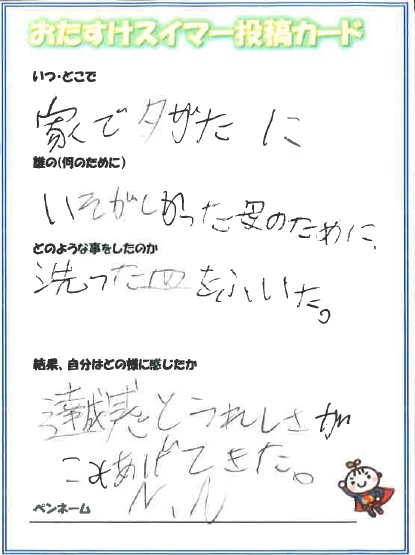 おたすけスイマー投稿カード
いつ・どこで
家で夕がたに
誰の(何のために)
いそがしかった母のために、
どのような事をしたのか
洗った皿をふいた。
結果、自分はどの様に感じたか
達成感とうれしさが
こみあげてきた。
N.N
ペンネーム